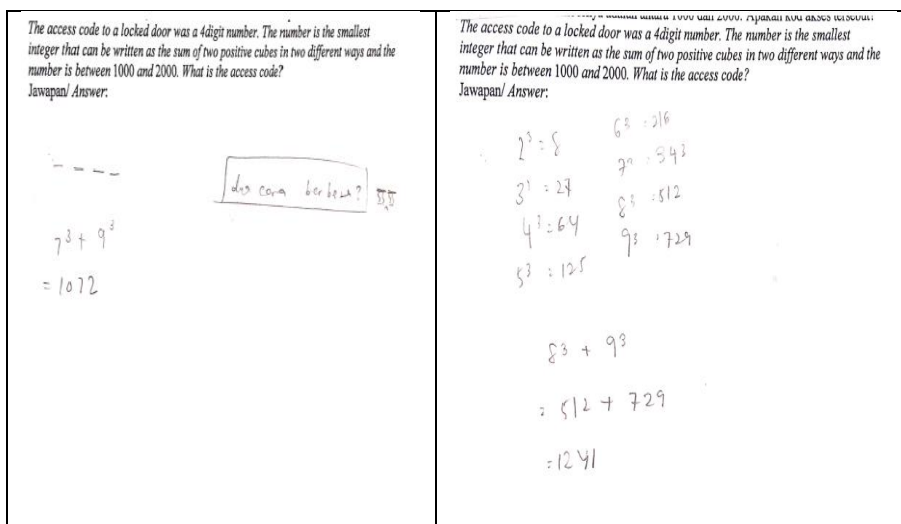 The access code to a locked door was a 4digit number. The number is the smallest
integer that can be written as the sum of two positive cubes in two different ways and the
number is between 1000 and 2000. What is the access code?
Jawapan/ Answer:
7³ + 9³
= 1072
cara berbeza?
1000 dan 2000. Apakah kod akses tersebut?
The access code to a locked door was a 4digit number. The number is the smallest
integer that can be written as the sum of two positive cubes in two different ways and the
number is between 1000 and 2000. What is the access code?
Jawapan/ Answer:
2³ = 8
3³ = 27
4³ = 64
5³ = 125
6³ = 216
7³ = 343
8³ = 512
9³ = 729
8³ + 9³
= 512 + 729
= 1241